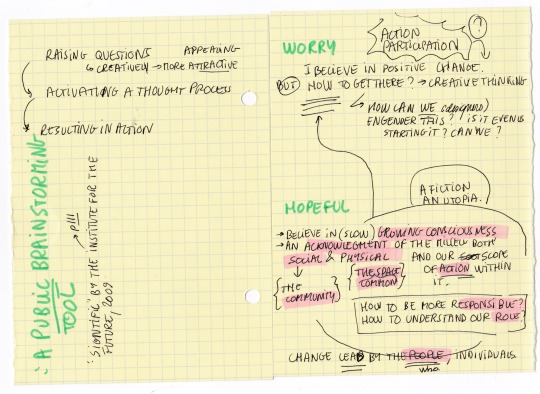 RAISING QUESTIONS APPEALING
↳ CREATIVELY → MORE ATTRACTIVE
ACTIVATING A THOUGHT PROCESS
RESULTING IN ACTION
"A PUBLIC BRAINSTORMING
TOOL
"SIGNTIFIC" BY THE INSTITUTE FOR THE
FUTURE, 2009
WORRY
ACTION
PARTICIPATION
?
I BELIEVE IN POSITIVE CHANGE.
BUT HOW TO GET THERE? → CREATIVE THINKING
↳ HOW CAN WE
ENGENDER THIS? IS IT EVEN US
STARTING IT? CAN WE?
A FICTION
AN UTOPIA.
HOPEFUL
→ BELIEVE IN (SLOW) GROWING CONSCIOUSNESS
→ AN ACKNOWLEDGMENT OF THE MILIEU BOTH
SOCIAL & PHYSICAL AND OUR SCOPE
{THE COMMUNITY} {THE SPACE COMMON} OF ACTION WITHIN
IT.
HOW TO BE MORE RESPONSIBLE?
HOW TO UNDERSTAND OUR ROLE?
CHANGE LEAD BY THE PEOPLE, INDIVIDUALS
who